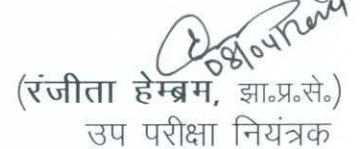 08/04/
(रंजीता हेम्ब्रम, झा०प्र०से०)
उप परीक्षा नियंत्रक